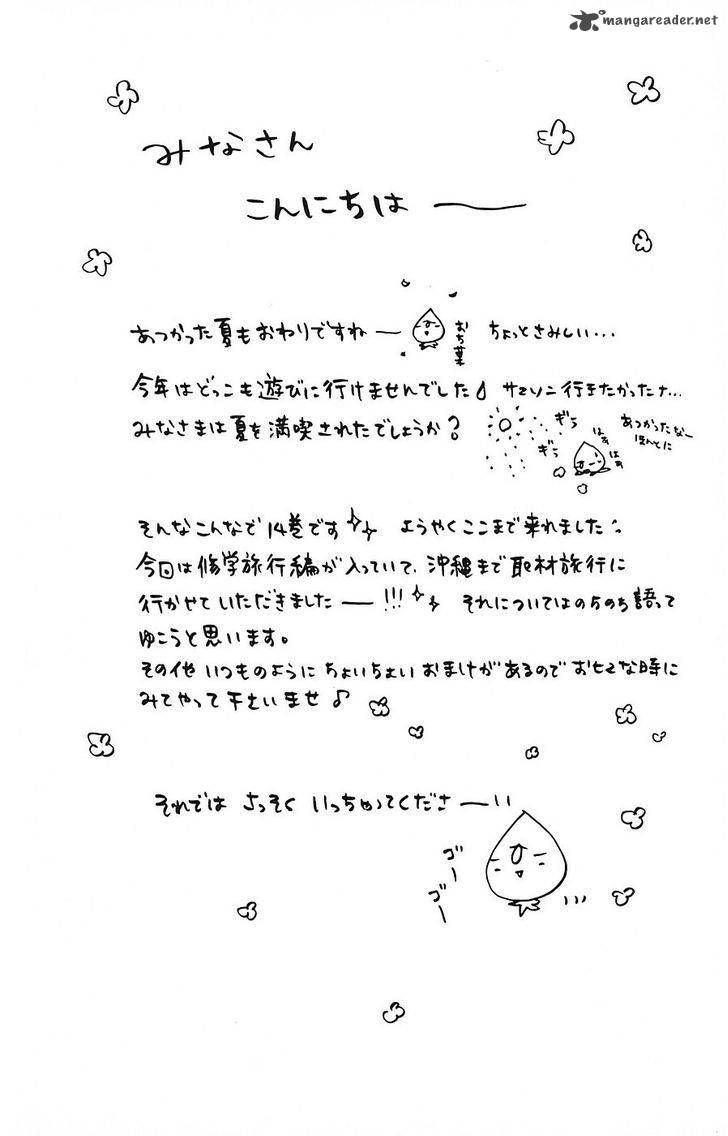 mangareader.net
みなさん
こんにちはー
あつかった夏もおわりですねー おち葉 ちょっとさみしい…
今年はどっこも遊びに行けませんでした サマソニ行きたかったナ…
みなさまは夏を満喫されたでしょうか?
ぎら ぎら はぁ はぁ
あつかったなー
ほんとに
そんなこんなで14巻です ようやくここまで来れました
今回は修学旅行編が入っていて、沖縄まで取材旅行に
行かせていただきましたー!!! それについてはのちのち語って
ゆこうと思います。
その他いつものようにちょいちょいおまけがあるのでおヒマな時に
みてやって下さいませ♪
それでは さっそく いっちゃってくださーい
ゴー
ゴー